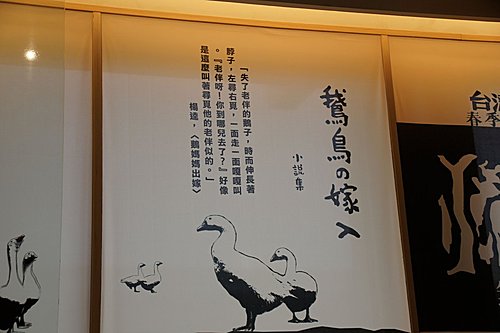 鵞鳥の嫁入
小說集
「失了老伴的鵝子，時而伸長著
脖子，左尋右覓，一面走一面嘎嘎叫
。『老伴呀！你到哪兒去了？』好像
是這麼叫著尋覓他的老伴似的。」
楊逵，〈鵝媽媽出嫁〉
春季